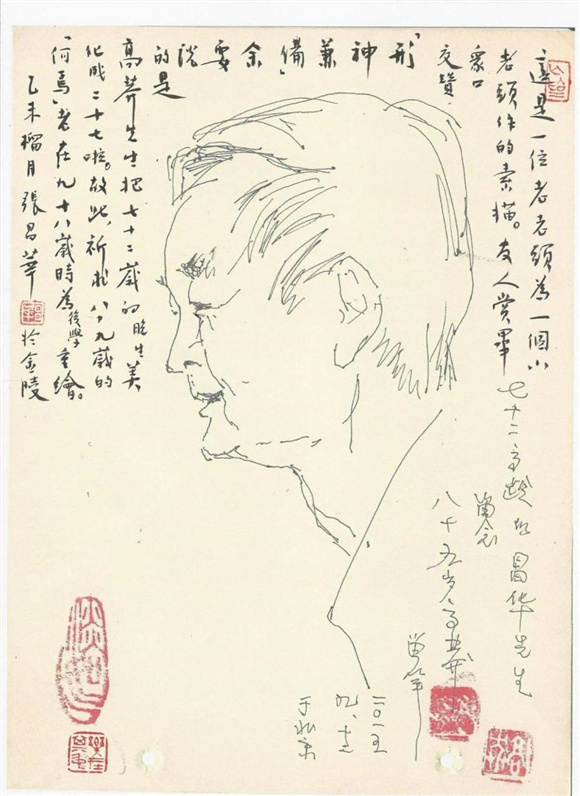 這是一位老老頭為一個小
老頭作的素描。友人賞畢
眾口
交贊
「形神兼備」余要說
的是
高莽先生把七十二歲的晚生美
化成二十七啦。故此,祈求八十九歲的
「何焉」老在九十八歲時為後學重繪。
乙未榴月張昌華於金陵
七十二高龄的昌华先生
留念
八十五岁高莽
二〇一五
九、十三
于北京